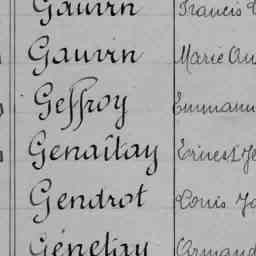 Gauvin Francis
Gauvin Marie
Geffroy Emmanu
Genaitay Ernest Je
Gendrot Louis Jo
Génetay Armand